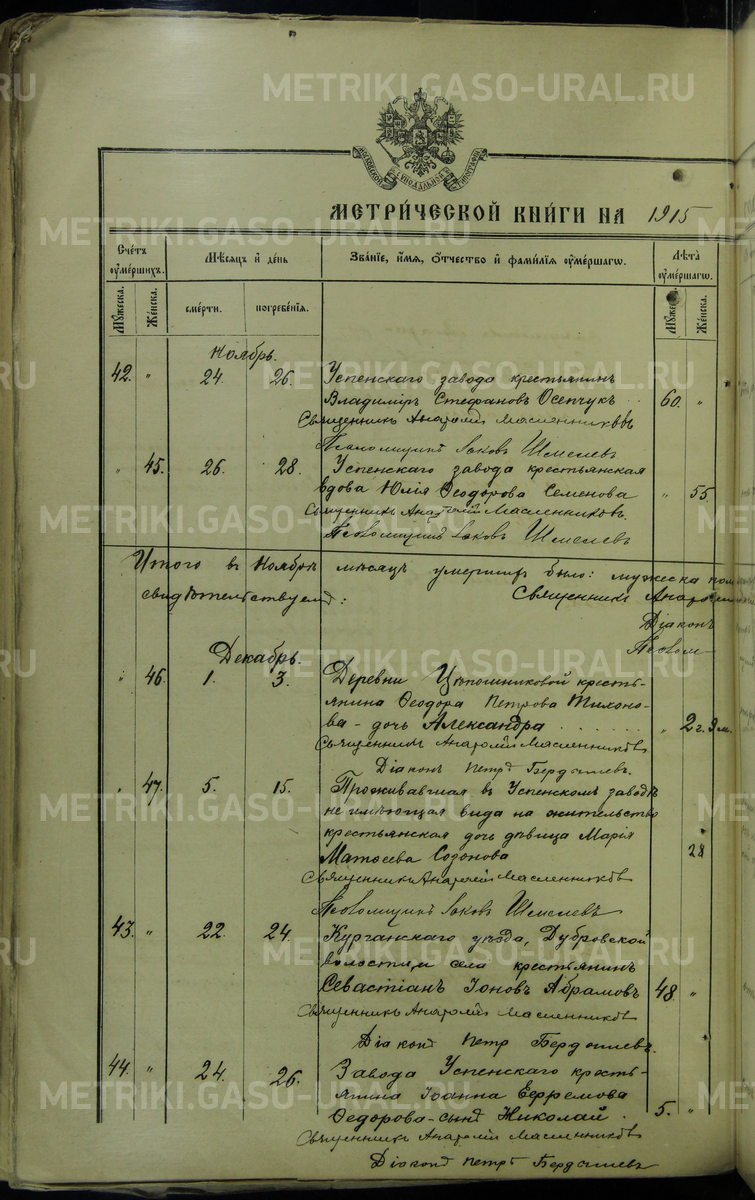 METRIKI.GASO-URAL.RU METRIKI.GASO-URAL.RU
МОСКОВСКОЙ СѶНОДАЛЬНОЙ ТИПОГРАФІИ
МЕТРИ́ЧЕСКОЙ КНИ́ГИ НА 1915
Сче́тъ ᲂу҆ме́ршихъ. Мѣ́сяцъ и҆ де́нь Зва́нїе, и҆́мя, ѻ҆́тчество и҆ фами́лїя ᲂу҆ме́ршагѡ. Лѣ́та ᲂу҆ме́ршагѡ.
Му́жеска. Же́нска. сме́рти. погребе́нїя. Му́жеска. Же́нска.
Ноябрь.
42. " 24. 26. Успенскаго завода крестьянинъ
Владиміръ Стефановъ Осепчукъ 60. "
Священникъ Анатолій Масленниковъ
Псаломщикъ Іаковъ Шмелевъ
" 45. 26. 28. Успенскаго завода крестьянская
вдова Юлія Ѳеодорова Семенова " 55.
Священникъ Анатолій Масленниковъ.
Псаломщикъ Іаковъ Шмелевъ
Итого въ Ноябрѣ мѣсяцѣ умершихъ было: мужеска пол
свидѣтельствуемъ: Священникъ Анатол
Діаконъ
Псалом
Декабрь.
" 46. 1. 3. Деревни крестьянина Ѳеодора Петрова Тихоно-
ва - дочь Александра " 2 г. 9 м.
Священникъ Анатолій Масленниковъ
Діаконъ Петръ Бердышевъ.
" 47. 5. 15. Проживавшая въ Успенскомъ заводѣ
не имѣющая вида на жительство
крестьянская дочь дѣвица Марія
Матѳеева Созонова 28
Священникъ Анатолій Масленниковъ
Псаломщикъ Іаковъ Шмелевъ
43. " 22. 24. Курганскаго уѣзда, Дубровской
волости, и села крестьянинъ
Севастіанъ Іоновъ Абрамовъ 48. "
Священникъ Анатолій Масленниковъ
Діаконъ Петръ Бердышевъ.
44. " 24. 26. Завода Успенскаго кресть-
янина Іоанна Ефремова
Ѳедорова - сынъ Николай. 5. "
Священникъ Анатолій Масленниковъ
Діаконъ Петръ Бердышевъ